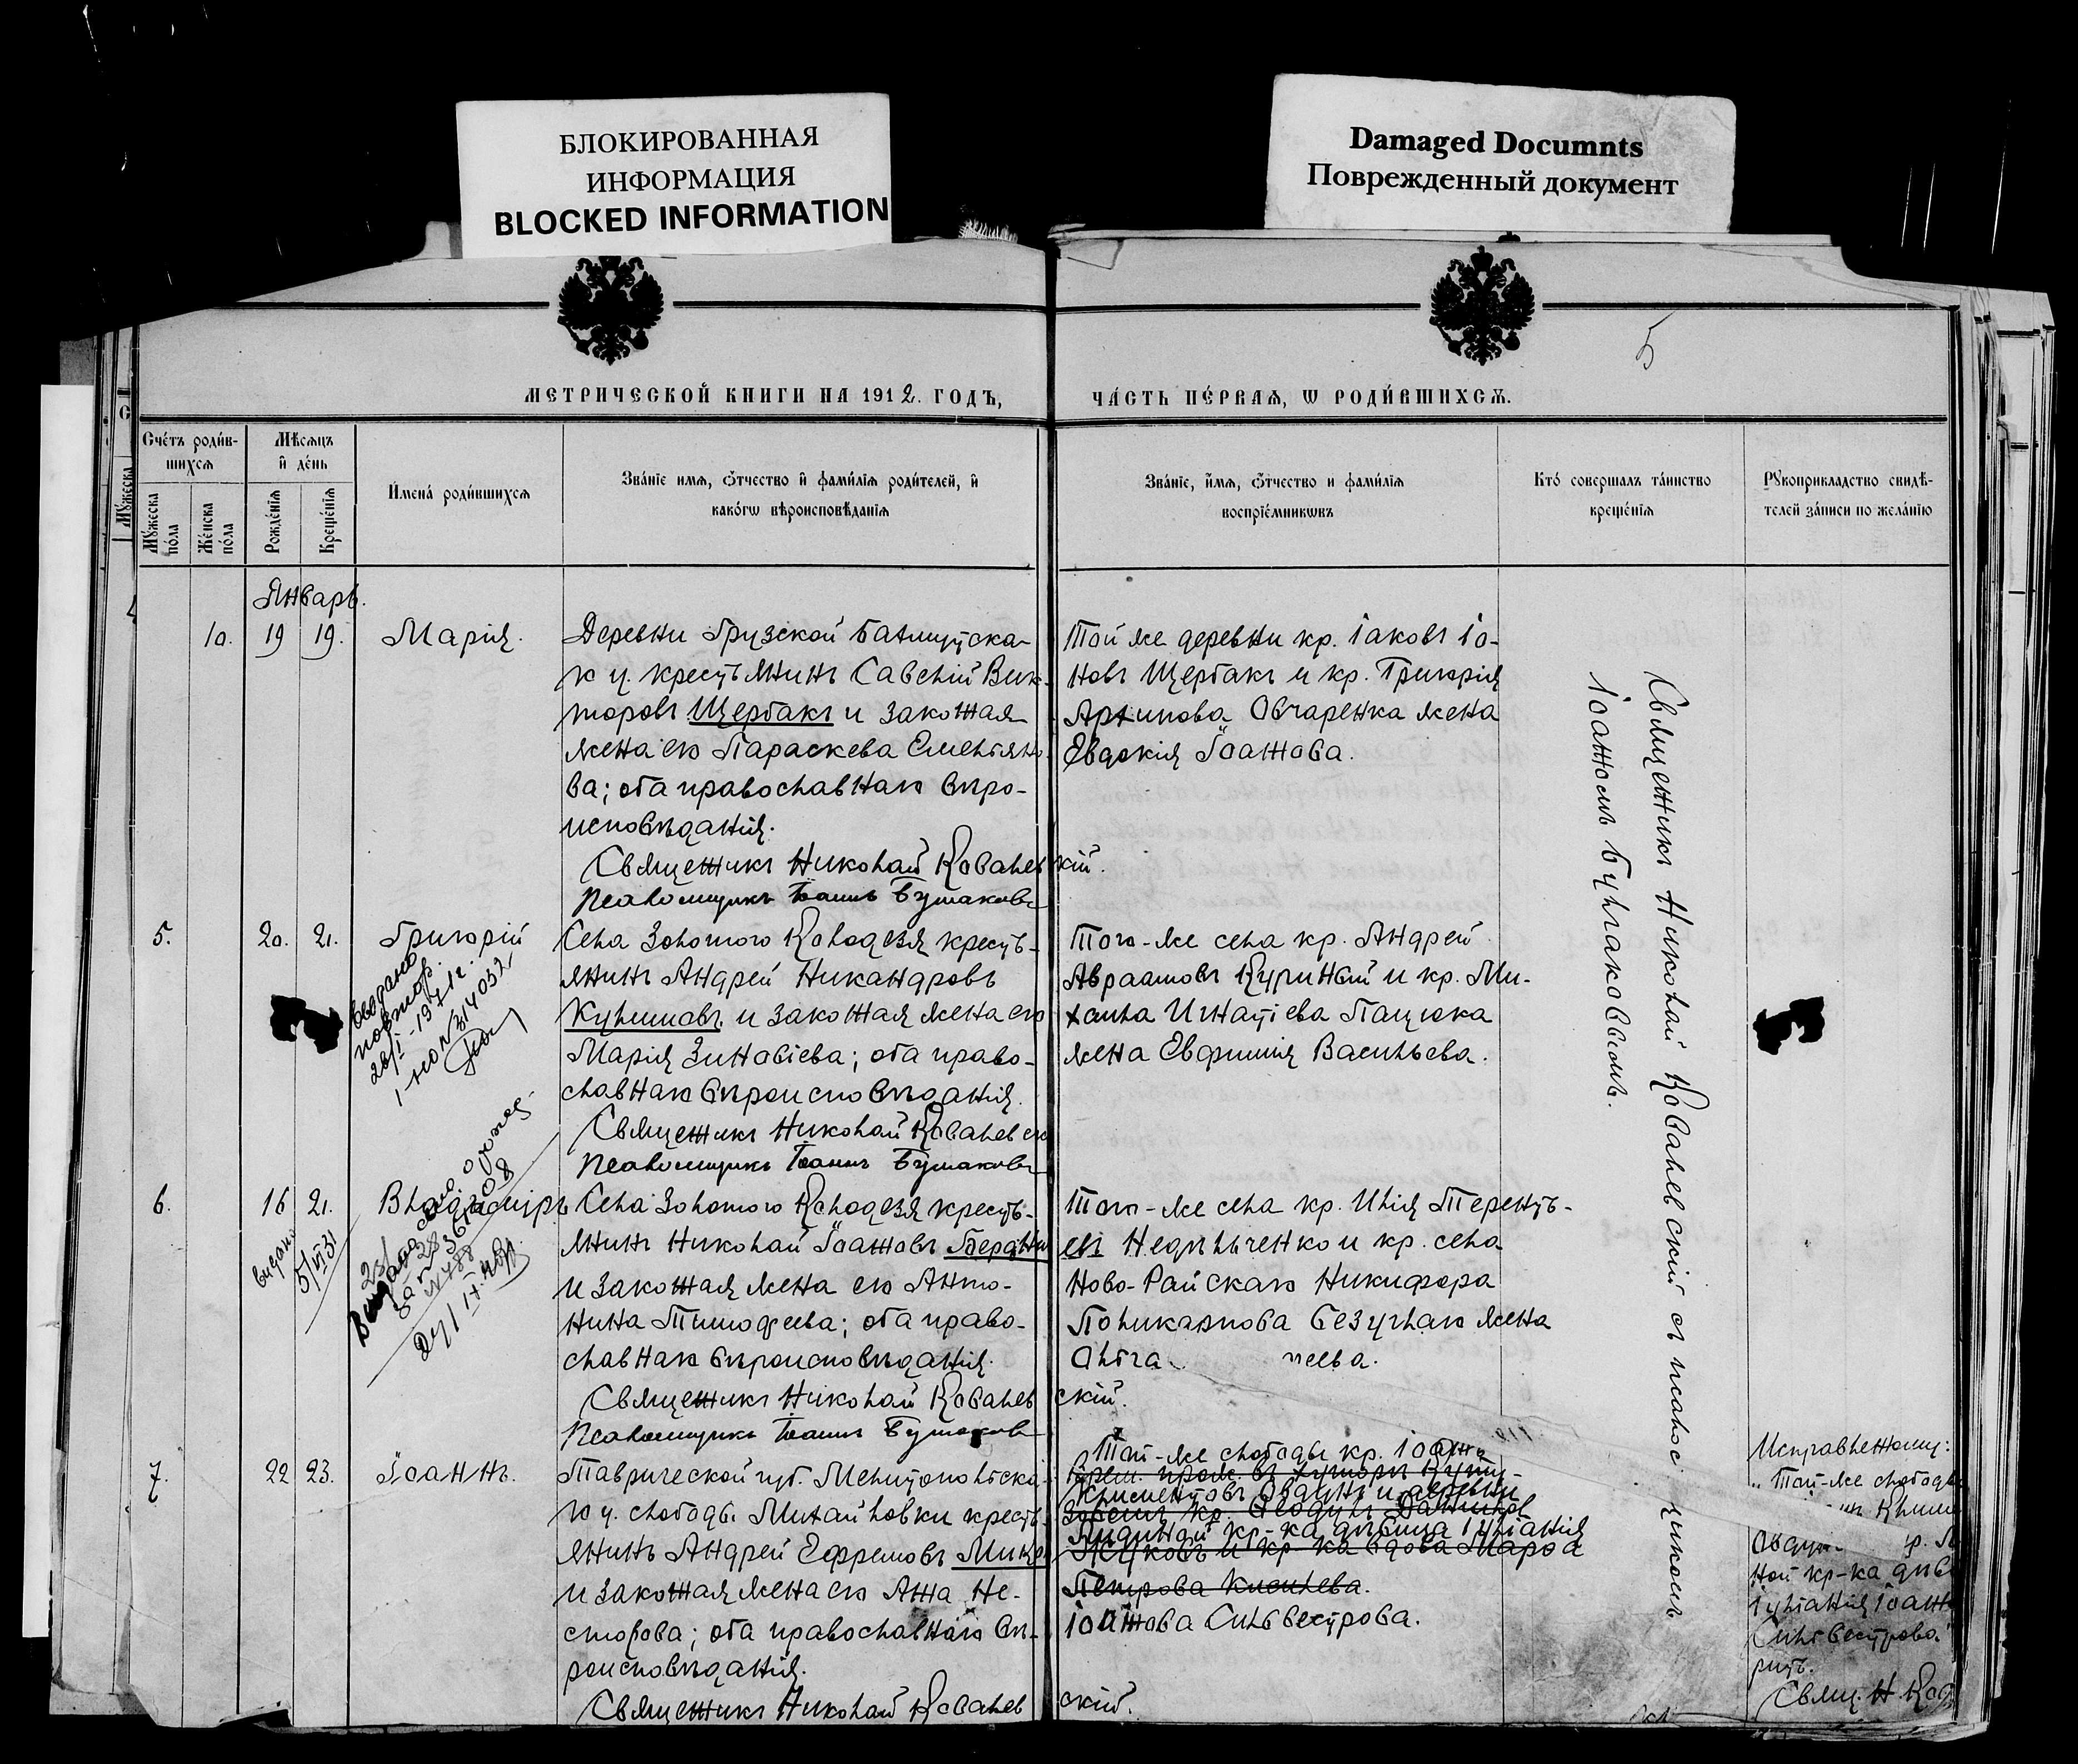 БЛОКИРОВАННАЯ
ИНФОРМАЦИЯ
BLOCKED INFORMATION
Damaged Documnts
Поврежденный документ
5
МЕТРИЧЕСКОЙ КНИГИ НА 1912. ГОДЪ,
ЧА́СТЬ ПЕ́РВАѦ, Ѡ РОДИ́ВШИХСѦ.
Сче́тъ роди́в-
шихсѧ
Мꙋ́жеска
по́ла
Же́нска
по́ла
Мѣ́сѧцъ
и҆ де́нь
Рожде́нїѧ
Креще́нїѧ
И҆мена̀ роди́вшихсѧ
Зва́нїе имѧ, ѻ҆́тчество и҆ фами́лїѧ роди́телей, и҆
како́гѡ вѣроисповѣ́данїѧ
Зва́нїе, и҆́мѧ, ѻ҆́тчество и фами́лїѧ
воспрїе́мникѡвъ
Кто́ соверша́лъ та́инство
креще́нїѧ
Рꙋкоприкла́дство свидѣ́-
телей за́писи по жела́нїю
Январь.
10. 19 19. Марія.
Деревни Грузской Бахмутска-
го у. крестьянинъ Савелій Вик-
торовъ Щербакъ и законная
жена его Параскева Емельяно-
ва; оба православнаго вѣро-
исповѣданія.
Священникъ Николай Ковалевскій.
Псаломщикъ Іоаннъ Булгаковъ
Той же деревни кр. Іаковъ Іо-
новъ Щербакъ и кр. Григорія
Архипова Овчаренка жена
Евдокія Іоаннова.
Священникъ Николай Ковалевскій съ псаломщикомъ
Іоанномъ Булгаковымъ.
5. 20. 21. Григорій
Выдано
повтор.
28/I-1971г.
1-НО №314032
Села Золотого Колодезя кресть-
янинъ Андрей Никандровъ
Куптовъ и законная жена его
Марія Зиновіева; оба право-
славнаго вѣроисповѣданія.
Священникъ Николай Ковалевскій
Псаломщикъ Іоаннъ Булгаковъ
Того-же села кр. Андрей
Авраамовъ Куринный и кр. Ми-
хаила Игнатіева Пацюка
жена Евфимія Васильева.
6. 16 21. Владиміръ
выдано
5/VI 31
Села Золотого Колодезя кресть-
янинъ Николай Іоанновъ
и законная жена его Анто-
нина Тимофеева; оба право-
славнаго вѣроисповѣданія.
Священникъ Николай Ковалевскій.
Псаломщикъ Іоаннъ Булгаковъ
Того-же села кр. Илія Теренть-
евъ Недѣльченко и кр. села
Ново-Райскаго Никифора
Поликарпова Безуглаго жена
Ольга
7. 22 23. Іоаннъ.
Таврической губ. Мелитопольска-
го у. слободы Михайловки кресть-
янинъ Андрей Ефремовъ
и законная жена его Анна Не-
сторова; оба православнаго вѣ-
роисповѣданія.
Священникъ Николай Ковалевскій.
Той-же слободы кр. Іоаннъ
Петрова Киселева.
Іоаннова Сильвестрова.
Исправленному:
"Той-же слободы
Іуліанія Іоанн
Сильвестрова."
Свящ. Н. Ков